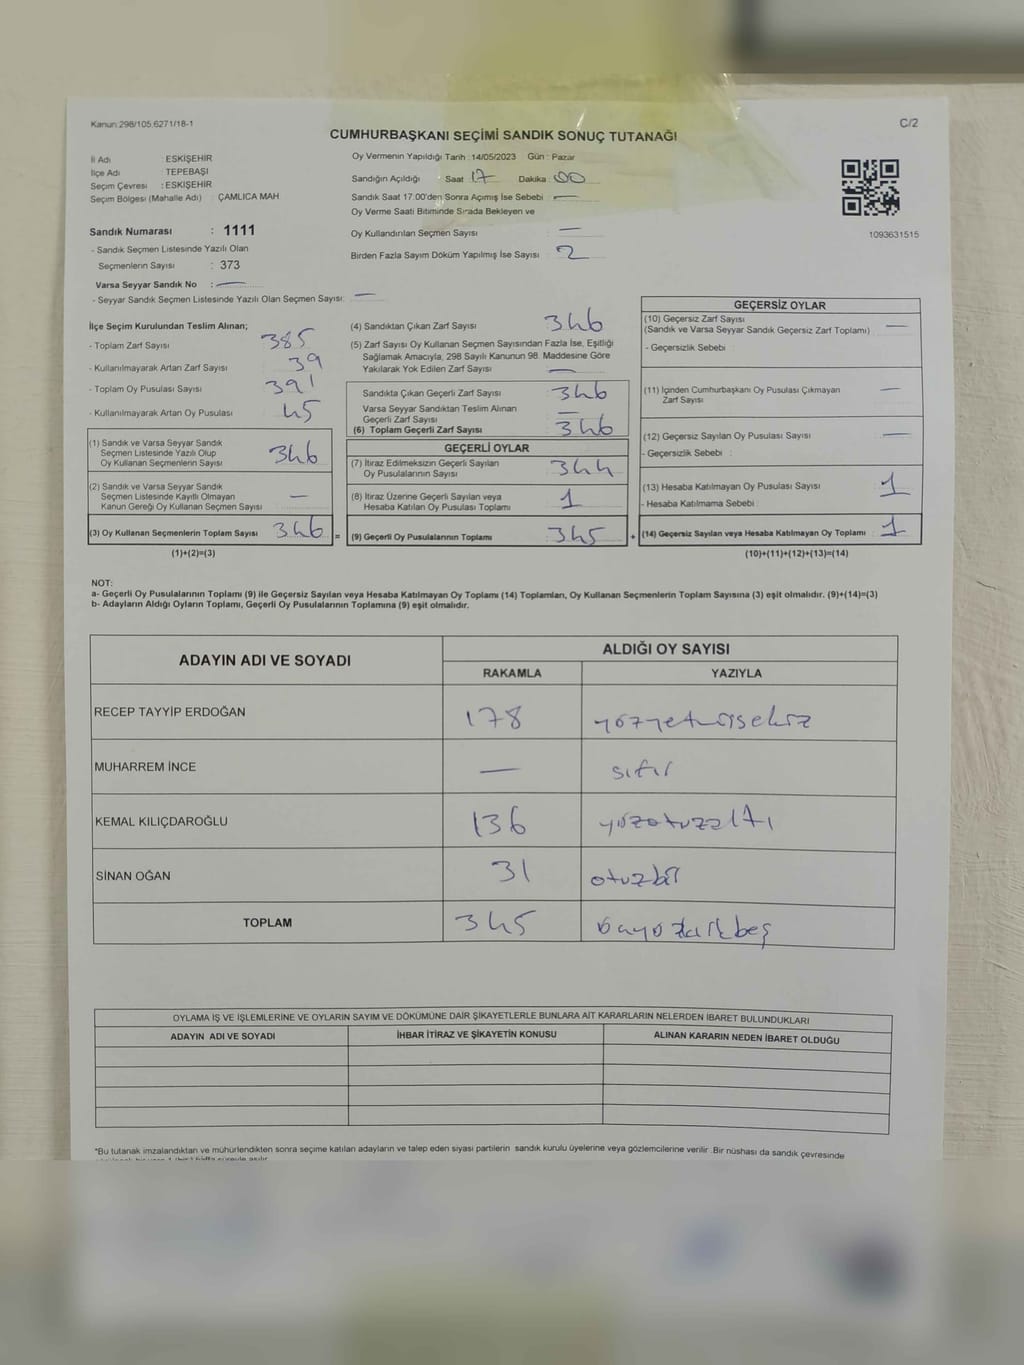 Kanun:298/105,6271/18-1
C/2
CUMHURBAŞKANI SEÇİMİ SANDIK SONUÇ TUTANAĞI
İl Adı : ESKİŞEHİR
İlçe Adı : TEPEBAŞI
Seçim Çevresi : ESKİŞEHİR
Seçim Bölgesi (Mahalle Adı) : ÇAMLICA MAH
Oy Vermenin Yapıldığı Tarih :14/05/2023 Gün : Pazar
Sandığın Açıldığı : Saat 17 Dakika : 00
Sandık Saat 17:00'den Sonra Açımış İse Sebebi : —
Oy Verme Saati Bitiminde Sırada Bekleyen ve
Oy Kullandırılan Seçmen Sayısı : —
Birden Fazla Sayım Döküm Yapılmış İse Sayısı : 2
1093631515
Sandık Numarası : 1111
- Sandık Seçmen Listesinde Yazılı Olan
Seçmenlerin Sayısı : 373
Varsa Seyyar Sandık No : —
- Seyyar Sandık Seçmen Listesinde Yazılı Olan Seçmen Sayısı: —
İlçe Seçim Kurulundan Teslim Alınan;
- Toplam Zarf Sayısı 385
- Kullanılmayarak Artan Zarf Sayısı 39
- Toplam Oy Pusulası Sayısı 391
- Kullanılmayarak Artan Oy Pusulası 45
(1) Sandık ve Varsa Seyyar Sandık
Seçmen Listesinde Yazılı Olup
Oy Kullanan Seçmenlerin Sayısı 346
(2) Sandık ve Varsa Seyyar Sandık
Seçmen Listesinde Kayıtlı Olmayan
Kanun Gereği Oy Kullanan Seçmen Sayısı —
(3) Oy Kullanan Seçmenlerin Toplam Sayısı 346
(1)+(2)=(3)
(4) Sandıktan Çıkan Zarf Sayısı 346
(5) Zarf Sayısı Oy Kullanan Seçmen Sayısından Fazla İse, Eşitliği
Sağlamak Amacıyla, 298 Sayılı Kanunun 98. Maddesine Göre
Yakılarak Yok Edilen Zarf Sayısı —
Sandıkta Çıkan Geçerli Zarf Sayısı 346
Varsa Seyyar Sandıktan Teslim Alınan
Geçerli Zarf Sayısı —
(6) Toplam Geçerli Zarf Sayısı 346
GEÇERLİ OYLAR
(7) İtiraz Edilmeksizin Geçerli Sayılan
Oy Pusulalarının Sayısı 344
(8) İtiraz Üzerine Geçerli Sayılan veya
Hesaba Katılan Oy Pusulası Toplamı 1
= (9) Geçerli Oy Pusulalarının Toplamı 345
GEÇERSİZ OYLAR
(10) Geçersiz Zarf Sayısı
(Sandık ve Varsa Seyyar Sandık Geçersiz Zarf Toplamı) —
- Geçersizlik Sebebi :
(11) İçinden Cumhurbaşkanı Oy Pusulası Çıkmayan
Zarf Sayısı —
(12) Geçersiz Sayılan Oy Pusulası Sayısı —
- Geçersizlik Sebebi :
(13) Hesaba Katılmayan Oy Pusulası Sayısı 1
- Hesaba Katılmama Sebebi :
+ (14) Geçersiz Sayılan veya Hesaba Katılmayan Oy Toplamı 1
(10)+(11)+(12)+(13)=(14)
NOT:
a- Geçerli Oy Pusulalarının Toplamı (9) ile Geçersiz Sayılan veya Hesaba Katılmayan Oy Toplamı (14) Toplamları, Oy Kullanan Seçmenlerin Toplam Sayısına (3) eşit olmalıdır. (9)+(14)=(3)
b- Adayların Aldığı Oyların Toplamı, Geçerli Oy Pusulalarının Toplamına (9) eşit olmalıdır.
ADAYIN ADI VE SOYADI ALDIĞI OY SAYISI
RAKAMLA YAZIYLA
RECEP TAYYİP ERDOĞAN 178 yüzyetmişsekiz
MUHARREM İNCE — sıfır
KEMAL KILIÇDAROĞLU 136 yüzotuzaltı
SİNAN OĞAN 31 otuzbir
TOPLAM 345
OYLAMA İŞ VE İŞLEMLERİNE VE OYLARIN SAYIM VE DÖKÜMÜNE DAİR ŞİKAYETLERLE BUNLARA AİT KARARLARIN NELERDEN İBARET BULUNDUKLARI
ADAYIN ADI VE SOYADI İHBAR İTİRAZ VE ŞİKAYETİN KONUSU ALINAN KARARIN NEDEN İBARET OLDUĞU
*Bu tutanak imzalandıktan ve mühürlendikten sonra seçime katılan adayların ve talep eden siyasi partilerin sandık kurulu üyelerine veya gözlemcilerine verilir. Bir nüshası da sandık çevresinde